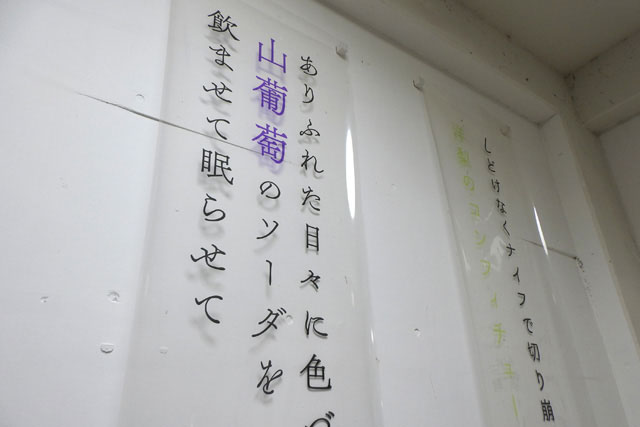 しどけなくナイフで切り崩
ありふれた日々に色づ
山葡萄のソーダを
飲ませて眠らせて